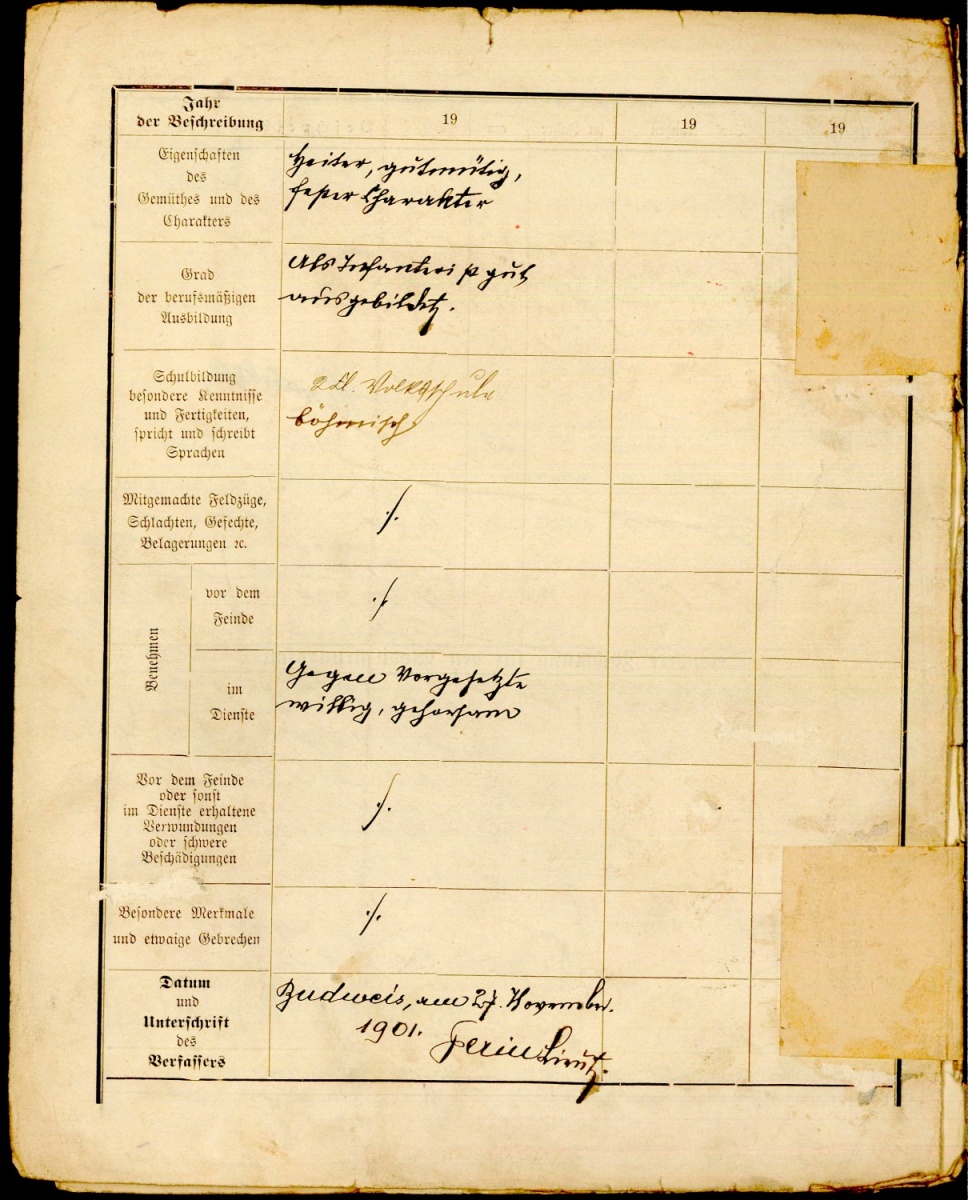 Jahr
der Beschreibung
19
19
19
Eigenschaften
des
Gemüthes und des
Charakters
Heiter, gutmütig,
fester Charakter
Grad
der berufsmäßigen
Ausbildung
Als Infanterist gut
ausgebildet.
Schulbildung
besondere Kenntnisse
und Fertigkeiten,
spricht und schreibt
Sprachen
2 Kl. Volksschule
böhmisch
Mitgemachte Feldzüge,
Schlachten, Gefechte,
Belagerungen ꝛc.
./.
Benehmen
vor dem
Feinde
./.
im
Dienste
Gegen Vorgesetzte
willig, gehorsam
Vor dem Feinde
oder sonst
im Dienste erhaltene
Verwundungen
oder schwere
Beschädigungen
./.
Besondere Merkmale
und etwaige Gebrechen
./.
Datum
und
Unterschrift
des
Verfassers
Budweis, am 27. November.
1901.
Lieut.